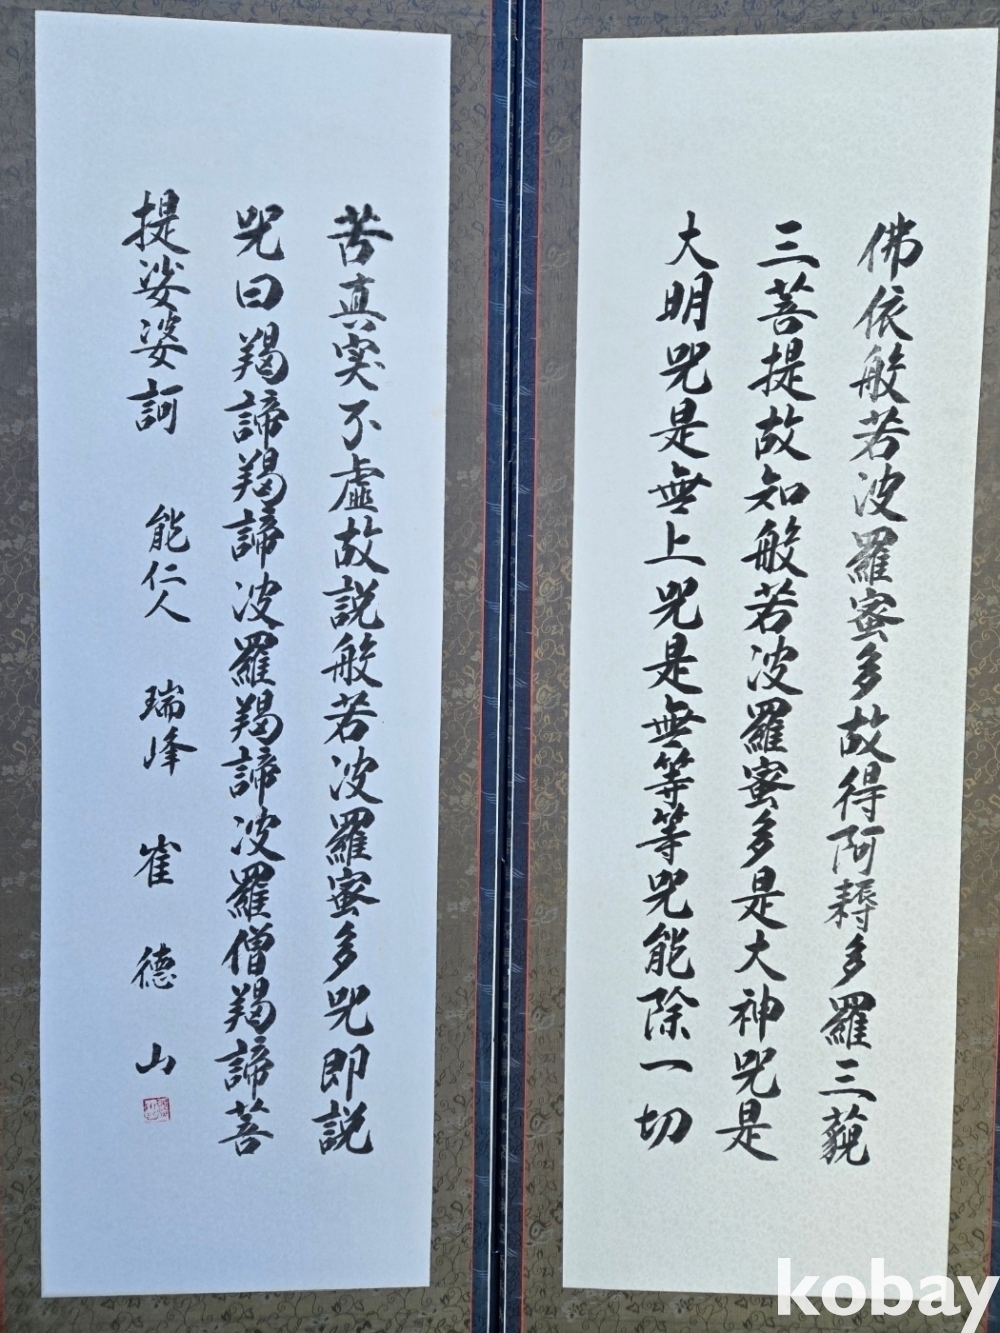 佛依般若波羅蜜多故得阿耨多羅三藐
三菩提故知般若波羅蜜多是大神呪是
大明呪是無上呪是無等等呪能除一切
苦真实不虛故説般若波羅蜜多呪即説
呪曰羯諦羯諦波羅羯諦波羅僧羯諦菩
提娑婆訶 能仁人 瑞峰 崔 德 山
kobay